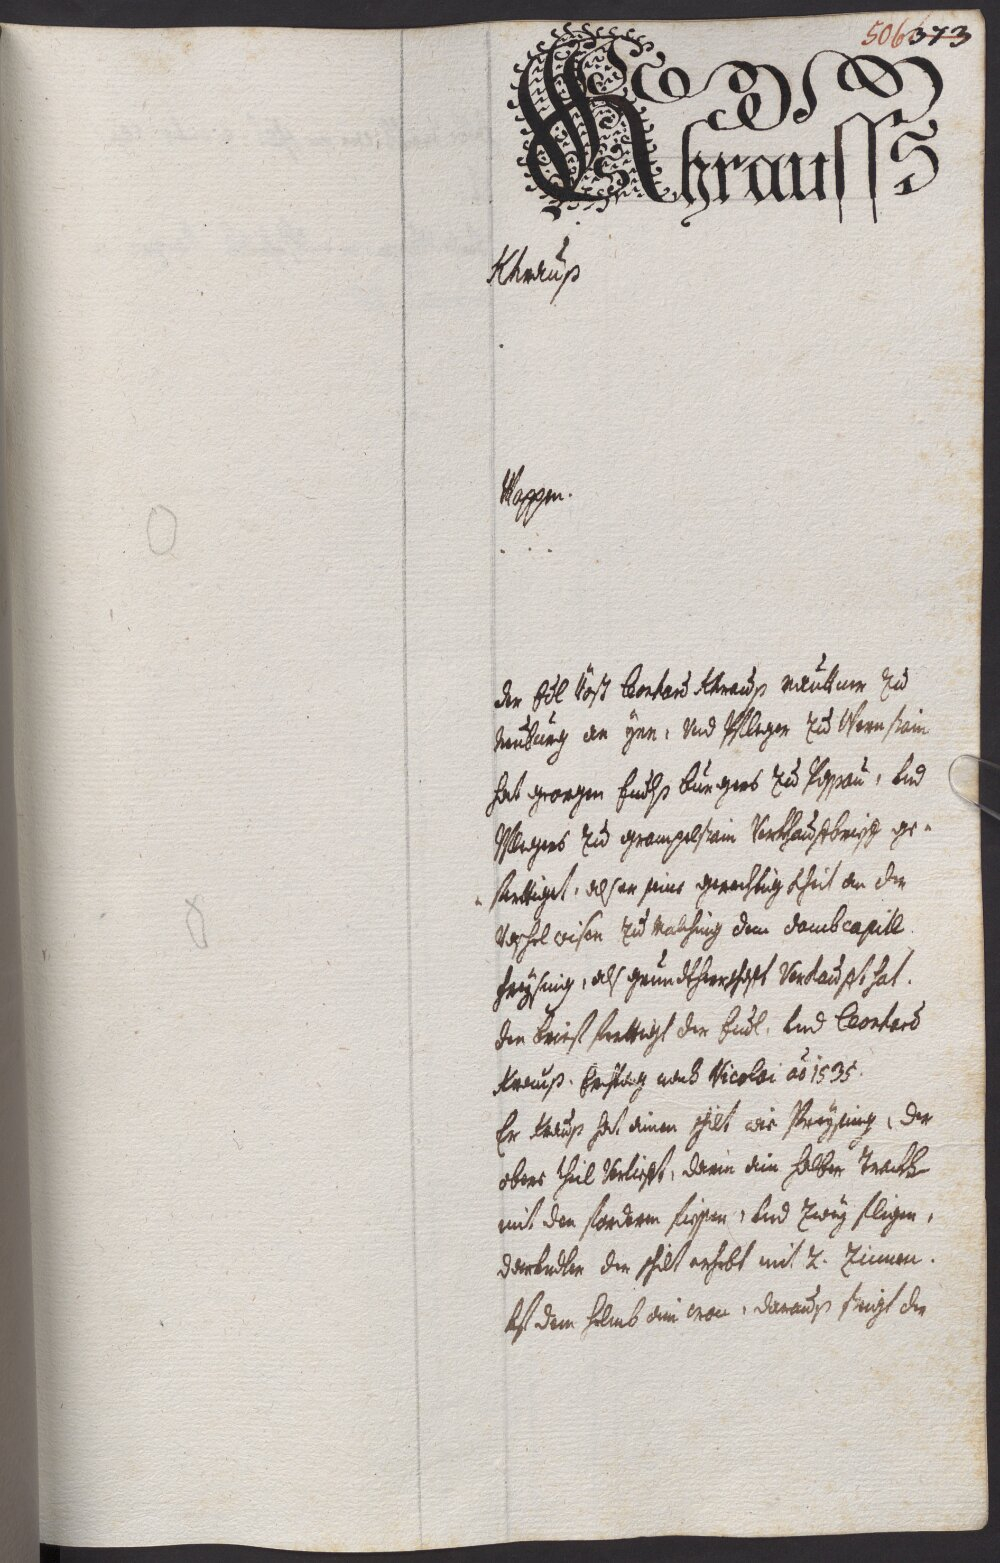 506 373
Khrauss
Khrauß
Wappen.
der Edl Vösst Leonhard Khrauß mauttner zu
Neuburg am Ynn, und Pfleger zu Wernstain
hat georgen fuchß burgers zu Passau, und
Pflegers zu grampelstain Verkhauffbrieff ge-
ferttiget, als er seine gerechtigkheit an der
wisen zu malching dem dombcapitl
freysing, als grundtherschafft Verkaufft hat.
den brieff ferttigt der Edl. und Leonhard
Krauß. Erchtag nach Nicolai ao 1535.
Er Krauß hat ainen schilt wie Preysing, der
ober theil Verlirfft, darin ein halber Trackh
mit den fordern fiessen, und zwey fligen,
der schilt erhebt mit 2. Zinnen.
Uf dem helmb ein cron, darauß steigt der